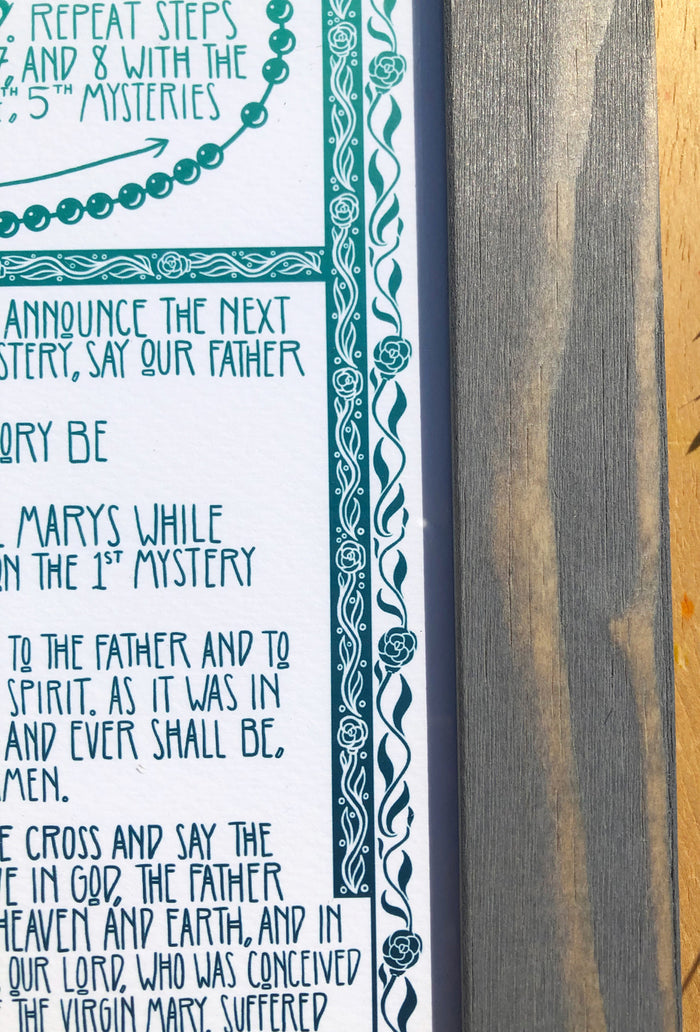 . REPEAT STEPS
7, AND 8 WITH THE
TH, 5TH MYSTERIES
ANNOUNCE THE NEXT
STERY, SAY OUR FATHER
ORY BE
MARYS WHILE
ON THE 1ST MYSTERY
TO THE FATHER AND TO
SPIRIT. AS IT WAS IN
AND EVER SHALL BE,
MEN.
E CROSS AND SAY THE
VE IN GOD, THE FATHER
HEAVEN AND EARTH, AND IN
OUR LORD, WHO WAS CONCEIVED
THE VIRGIN MARY, SUFFERED